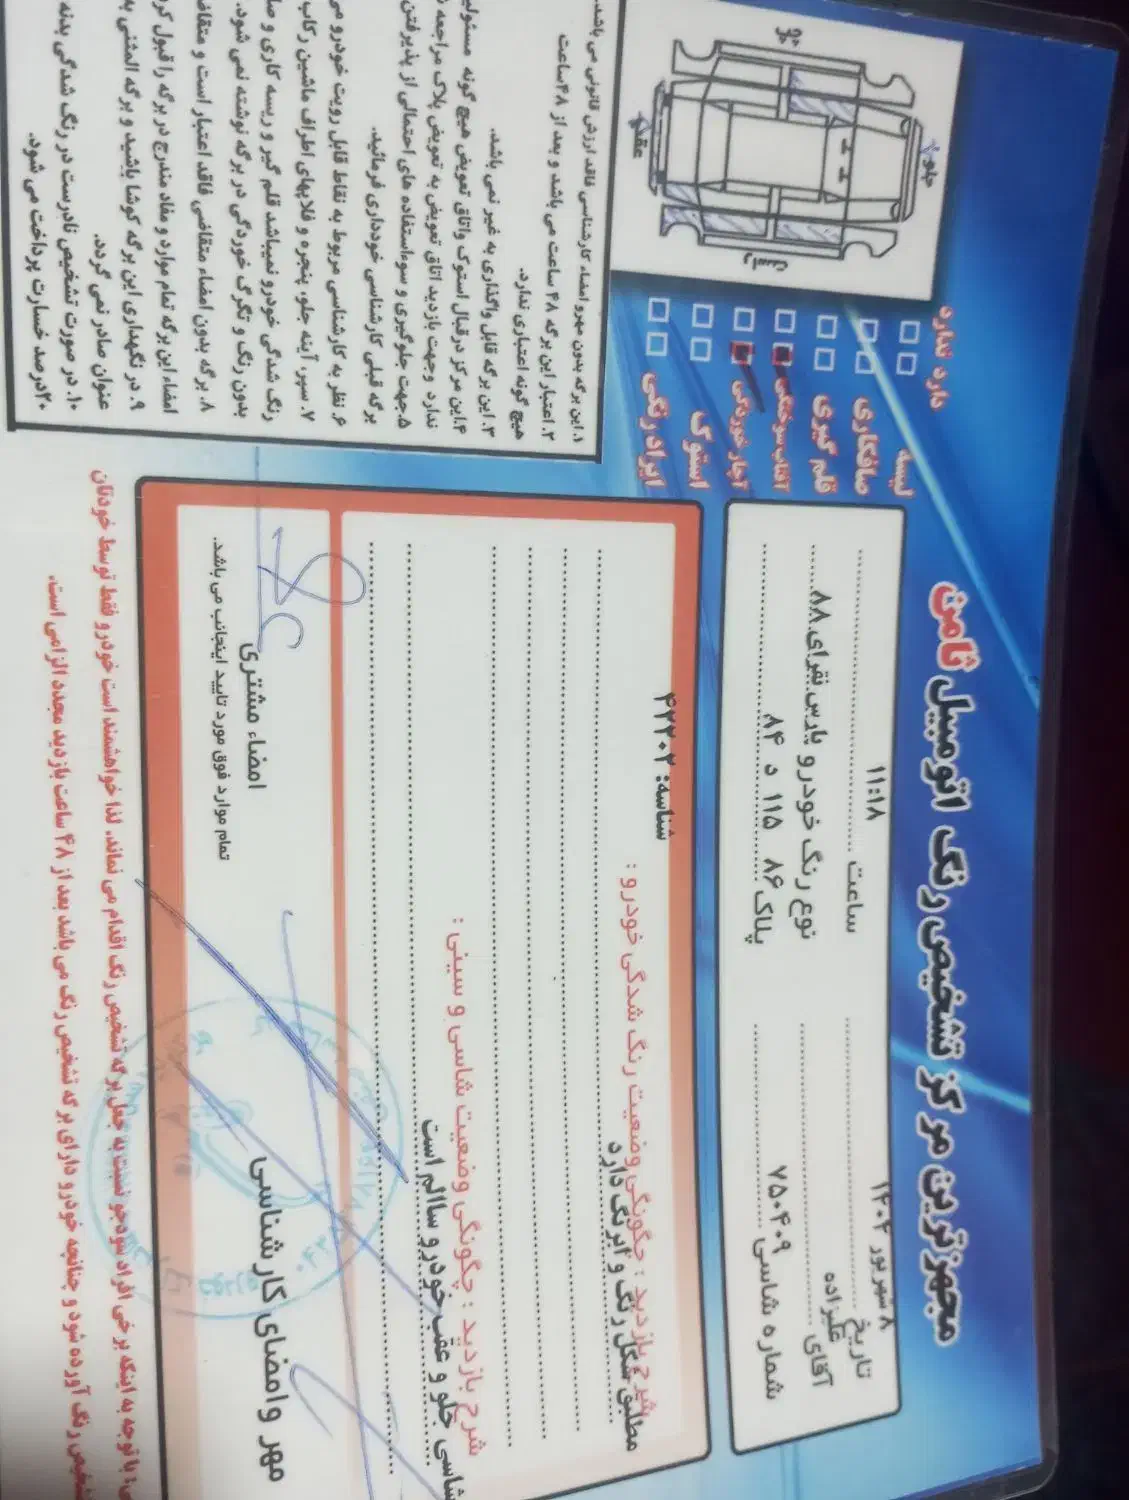 مجهزترین مرکز تشخیص رنگ اتومبیل ثامن
تاریخ ۸ شهریور ۱۴۰۲ ساعت ۱۱:۱۸
آقای علیزاده نوع رنگ خودرو پارس نقرای ۸۸
شماره شاسی ۷۵۰۴۰۹ پلاک ۸۶ ۱۱۵ د ۸۴
شرح بازدید : چگونگی وضعیت رنگ شدگی خودرو :
شناسه: ۴۲۲۰۲
مطلبق شگل رنگ و ابرنگ دارد
شرح بازدید : چگونگی وضعیت شاسی و سینی :
شاسی جلو و عقب خودرو ساالم است
مهر وامضای کارشناسی
امضاء مشتری
تمام موارد فوق مورد تایید اینجانب می باشد.
با توجه به اینکه برخی افراد سودجو نسبت به جعل برگه تشخیص رنگ اقدام می نمائند. لذا خواهشمند است خودرو فقط توسط خودتان
تشخیص رنگ آورده شود و چنانچه خودرو دارای برگه تشخیص رنگ می باشد بعد از ۴۸ ساعت بازدید مجدد الزامی است.
دارد ندارد
لیسه
صافکاری
قلم گیری
آفتاب سوختگی
آچار خوردگی
استوک
ایرادرنگی
جلو
چپ
راست
عقب
۱. این برگه بدون مهرو امضاء کارشناسی فاقد ارزش قانونی می باشد.
۲. اعتبار این برگه ۴۸ ساعت می باشد و بعد از ۴۸ساعت
هیچ گونه اعتباری ندارد.
۳. این برگه قابل واگذاری به غیر نمی باشد.
۴.این مرکز درقبال استوک واتاق تعویض هیچ گونه
ندارد وجهت بازدید اتاق تعویض به تعویض پلاک مراجعه
۵.جهت جلوگیری و سوءاستفاده های احتمالی از پذیرفتن
برگه قبلی کارشناسی خودداری فرمائید.
۶. نظر به کارشناسی مربوط به نقاط قابل رویت خودرو
۷. سپر، آینه جلو، پنجره و قلابهای اطراف ماشین رکاب
رنگ شدگی خودرو نمیباشد قلم گیر و ریسه کاری و
بدون رنگ و تگرگ خوردگی در برگه نوشته نمی شود.
۸. برگه بدون امضاء متقاضی فاقد اعتبار است و
امضاء این برگه تمام موارد و مفاد مندرج در برگه را قبول
۹. در نگهداری این برگه کوشا باشید و برگه المثنی
عنوان صادر نمی گردد.
۱۰. در صورت تشخیص نادرست در رنگ شدگی بدنه
۲۰درصد خسارت پرداخت می شود.